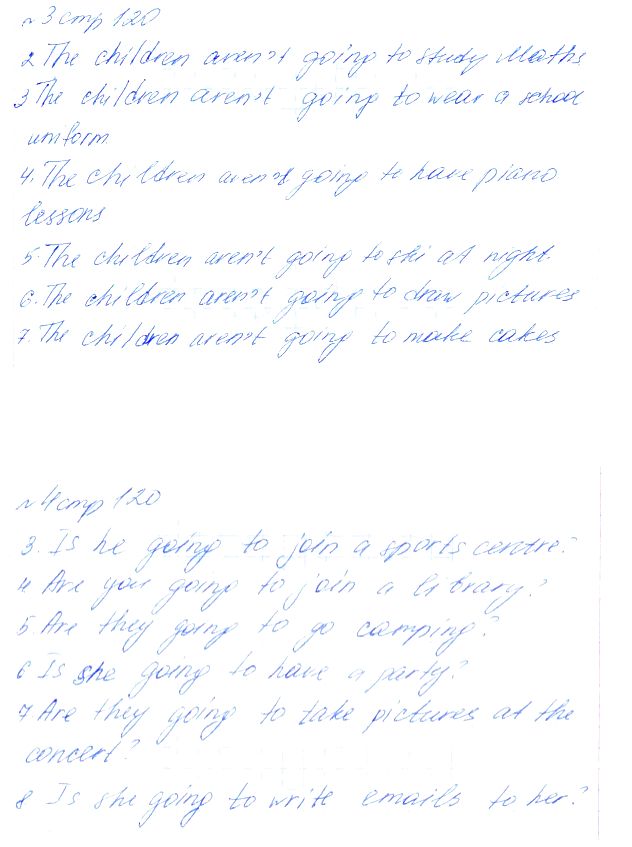 ~3 стр 120
2 The children aren't going to study Maths
3 The children aren't going to wear a school
uniform.
4. The children aren't going to have piano
lessons
5. The children aren't going to ski at night.
6. The children aren't going to draw pictures
7. The children aren't going to make cakes
~4 стр 120
3. Is he going to join a sports centre?
4 Are you going to join a library?
5. Are they going to go camping?
6 Is she going to have a party?
7 Are they going to take pictures at the
concert?
8 Is she going to write emails to her?